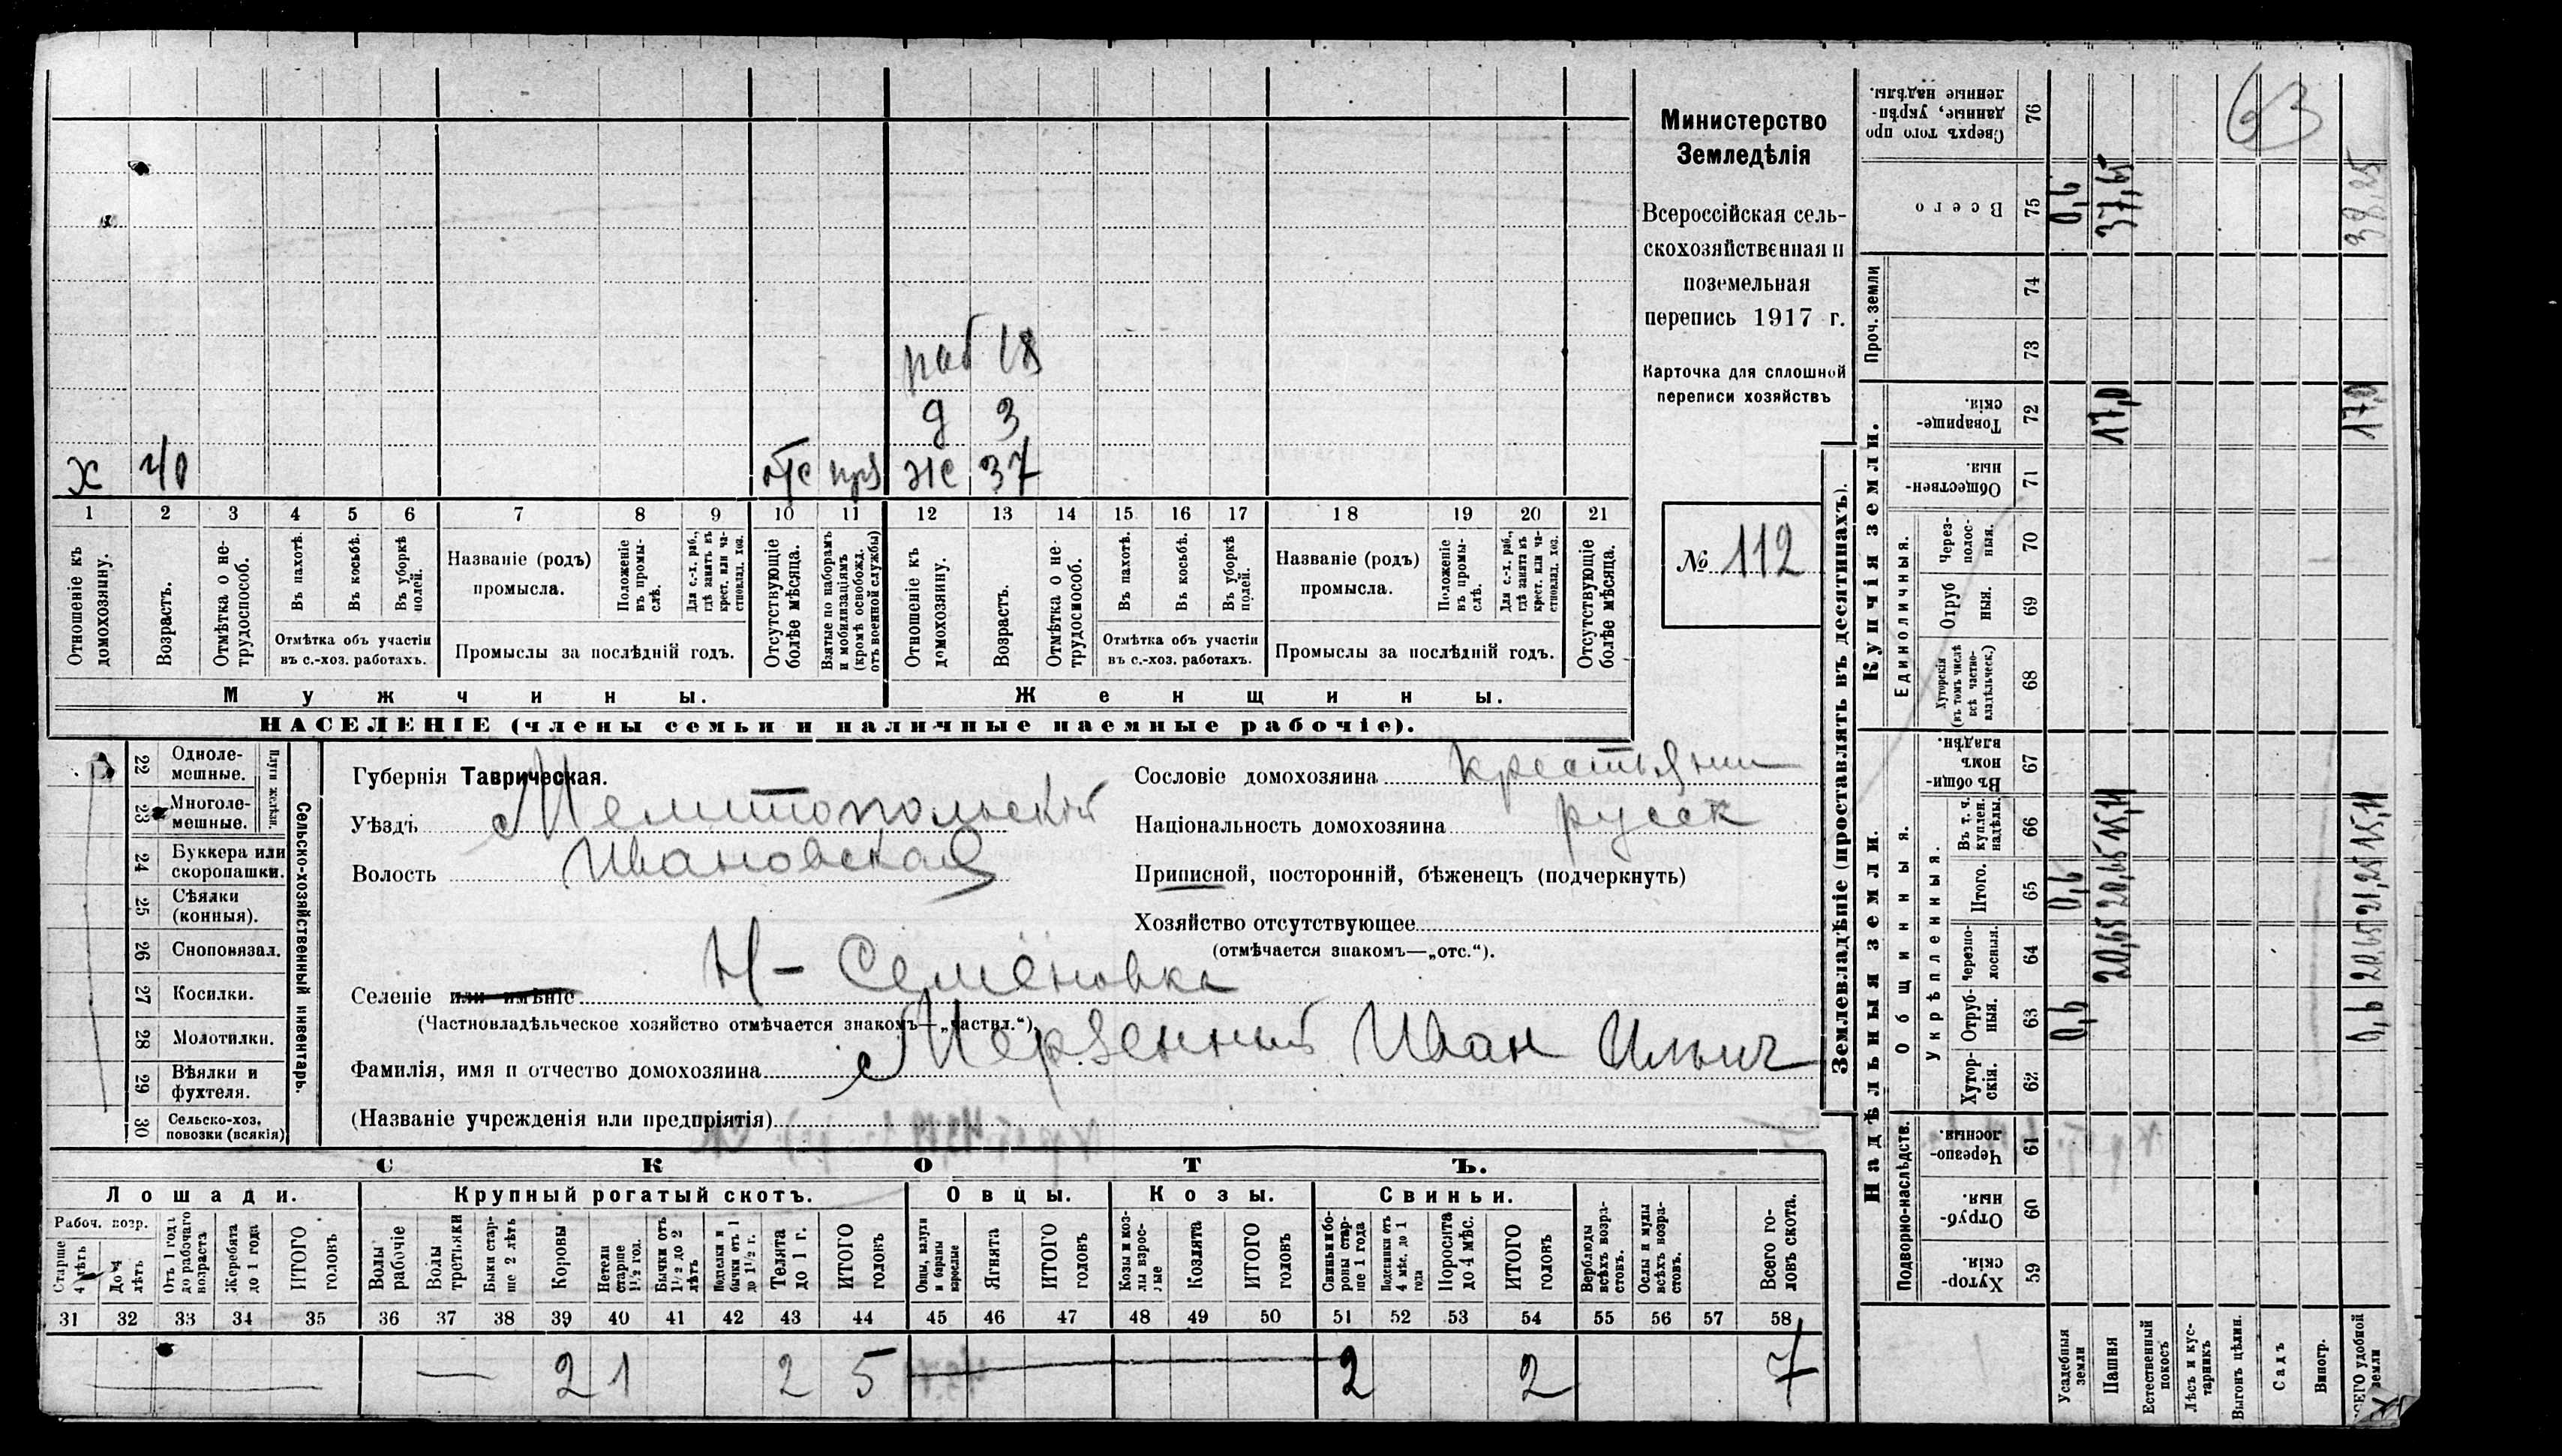 раб 18
д 3
х 40 отс пр ж 37
1 2 3 4 5 6 7 8 9 10 11 12 13 14 15 16 17 18 19 20 21
Отношеніе къ домохозяину.
Возрастъ.
Отмѣтка о нетрудоспособ.
Въ пахотѣ.
Въ косьбѣ.
Въ уборкѣ полей.
Отмѣтка объ участіи въ с.-хоз. работахъ.
Названіе (родъ) промысла.
Положеніе въ промыслѣ.
Для с.-х. раб., гдѣ занятъ въ крест. или частновлад. хоз.
Промыслы за послѣдній годъ.
Отсутствующіе болѣе мѣсяца.
Взятые по наборамъ и мобилизаціямъ (кромѣ освобожд. отъ военной службы)
Отношеніе къ домохозяину.
Возрастъ.
Отмѣтка о нетрудоспособ.
Въ пахотѣ.
Въ косьбѣ.
Въ уборкѣ полей.
Отмѣтка объ участіи въ с.-хоз. работахъ.
Названіе (родъ) промысла.
Положеніе въ промыслѣ.
Для с.-х. раб., гдѣ занята въ крест. или частновлад. хоз.
Промыслы за послѣдній годъ.
Отсутствующіе болѣе мѣсяца.
Мужчины.
Женщины.
НАСЕЛЕНІЕ (члены семьи и наличные наемные рабочіе).
Министерство
Земледѣлія
Всероссійская сель-
скохозяйственная и
поземельная
перепись 1917 г.
Карточка для сплошной
переписи хозяйствъ
№ 112
22 Однолемешные.
23 Многолемешные.
Плуги желѣзн.
24 Буккера или скоропашки.
25 Сѣялки (конныя).
26 Сноповязал.
27 Косилки.
28 Молотилки.
29 Вѣялки и фухтеля.
30 Сельско-хоз. повозки (всякія)
Сельско-хозяйственный инвентарь.
Губернія Таврическая.
Уѣздъ Мелитопольскій
Волость Ивановская
Селеніе или имѣніе Н-Семеновка
(Частновладѣльческое хозяйство отмѣчается знакомъ—„частвл.“)
Фамилія, имя и отчество домохозяина Мерзенный Иван Ильич
(Названіе учрежденія или предпріятія)
Сословіе домохозяина крестьянин
Національность домохозяина русск
Приписной, посторонній, бѣженецъ (подчеркнуть)
Хозяйство отсутствующее
(отмѣчается знакомъ—„отс.“).
СКОТЪ.
Лошади.
Крупный рогатый скотъ.
Овцы.
Козы.
Свиньи.
Рабоч. возр.
Старше 4 лѣтъ
До 4 лѣтъ
Отъ 1 года до рабочаго возраста
Жеребята до 1 года
ИТОГО головъ
Волы рабочіе
Волы третьяки
Быки старше 2 лѣтъ
Коровы
Нетели старше 1½ год.
Бычки отъ 1½ до 2 лѣтъ
Подтелки и бычки отъ 1 до 1½ г.
Телята до 1 г.
ИТОГО головъ
Овцы, валухи и бараны взрослые
Ягнята
ИТОГО головъ
Козы и козлы взрослые
Козлята
ИТОГО головъ
Свиньи и боровы старше 1 года
Подсвинки отъ 4 мѣс. до 1 года
Поросята до 4 мѣс.
ИТОГО головъ
Верблюды всѣхъ возрастовъ.
Ослы и мулы всѣхъ возрастовъ.
Всего головъ скота.
31 32 33 34 35 36 37 38 39 40 41 42 43 44 45 46 47 48 49 50 51 52 53 54 55 56 57 58
— — 2 1 2 5 — 2 2 7
Землевладѣніе (проставлять въ десятинахъ).
63
Сверхъ того проданные, укрѣпленные надѣлы. 76
Всего 75 0,6 37,65 38,25
Проч. земли 74 73
Купчія земли.
Товарищескія. 72 17,0 17,0
Общественныя. 71
Единоличныя.
Черезполосныя. 70
Отрубныя. 69
Хуторскія (въ томъ числѣ всѣ частновладѣльческ.) 68
Надѣльныя земли.
Общинныя.
Въ общинномъ владѣн. 67
Укрѣпленныя.
Въ т. ч. куплен. надѣлы. 66 15,11 15,11
Итого. 65 0,6 20,65 21,25
Черезполосныя. 64 20,65 20,65
Отрубныя. 63 0,6 0,6
Хуторскія. 62
Подворно-наслѣдств.
Черезполосныя. 61
Отрубныя. 60
Хуторскія. 59
Усадебныя земли
Пашня
Естественный покосъ
Лѣсъ и кустарникъ
Выгонъ цѣлин.
Садъ
Виногр.
ВСЕГО удобной земли